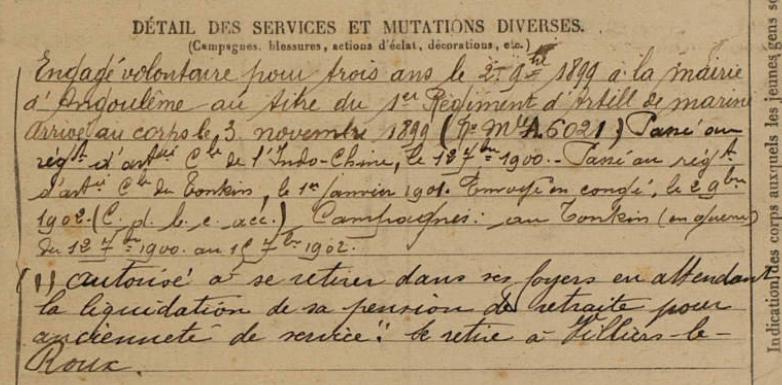 DÉTAIL DES SERVICES ET MUTATIONS DIVERSES.
(Campagnes, blessures, actions d'éclat, décorations, etc.)
Engagé volontaire pour trois ans le 2 9bre 1899 à la mairie
d'Angoulême au titre du 1er Régiment d'Artill de marine
Arrivé au corps le 3 novembre 1899 (No Mle A.6021) Passé au
régt d'artie Cle de l'Indo-Chine, le 12 7bre 1900. - Passé au régt
d'artie Cle du Tonkin, le 1er janvier 1901. Envoyé en congé, le 2 9bre
1902. (C. d. b. c. acc.) Campagnes: au Tonkin (en guerre)
du 12 7bre 1900 au 15 7bre 1902.
(1) autorisé à se retirer dans ses foyers en attendant
la liquidation de sa pension de retraite pour
ancienneté de service". Se retire à Villiers-le-
Roux.
Indication des corps auxquels les jeunes gens